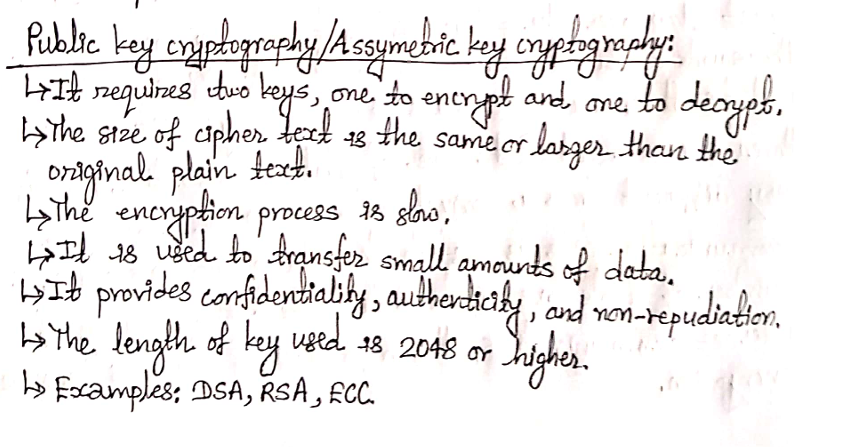 Public key cryptography/Assymetric key cryptography:
↳It requires two keys, one to encrypt and one to decrypt.
↳The size of cipher text is the same or larger than the
original plain text.
↳The encryption process is slow.
↳It is used to transfer small amounts of data.
↳It provides confidentiality, authenticity, and non-repudiation.
↳The length of key used is 2048 or higher.
↳Examples: DSA, RSA, ECC.